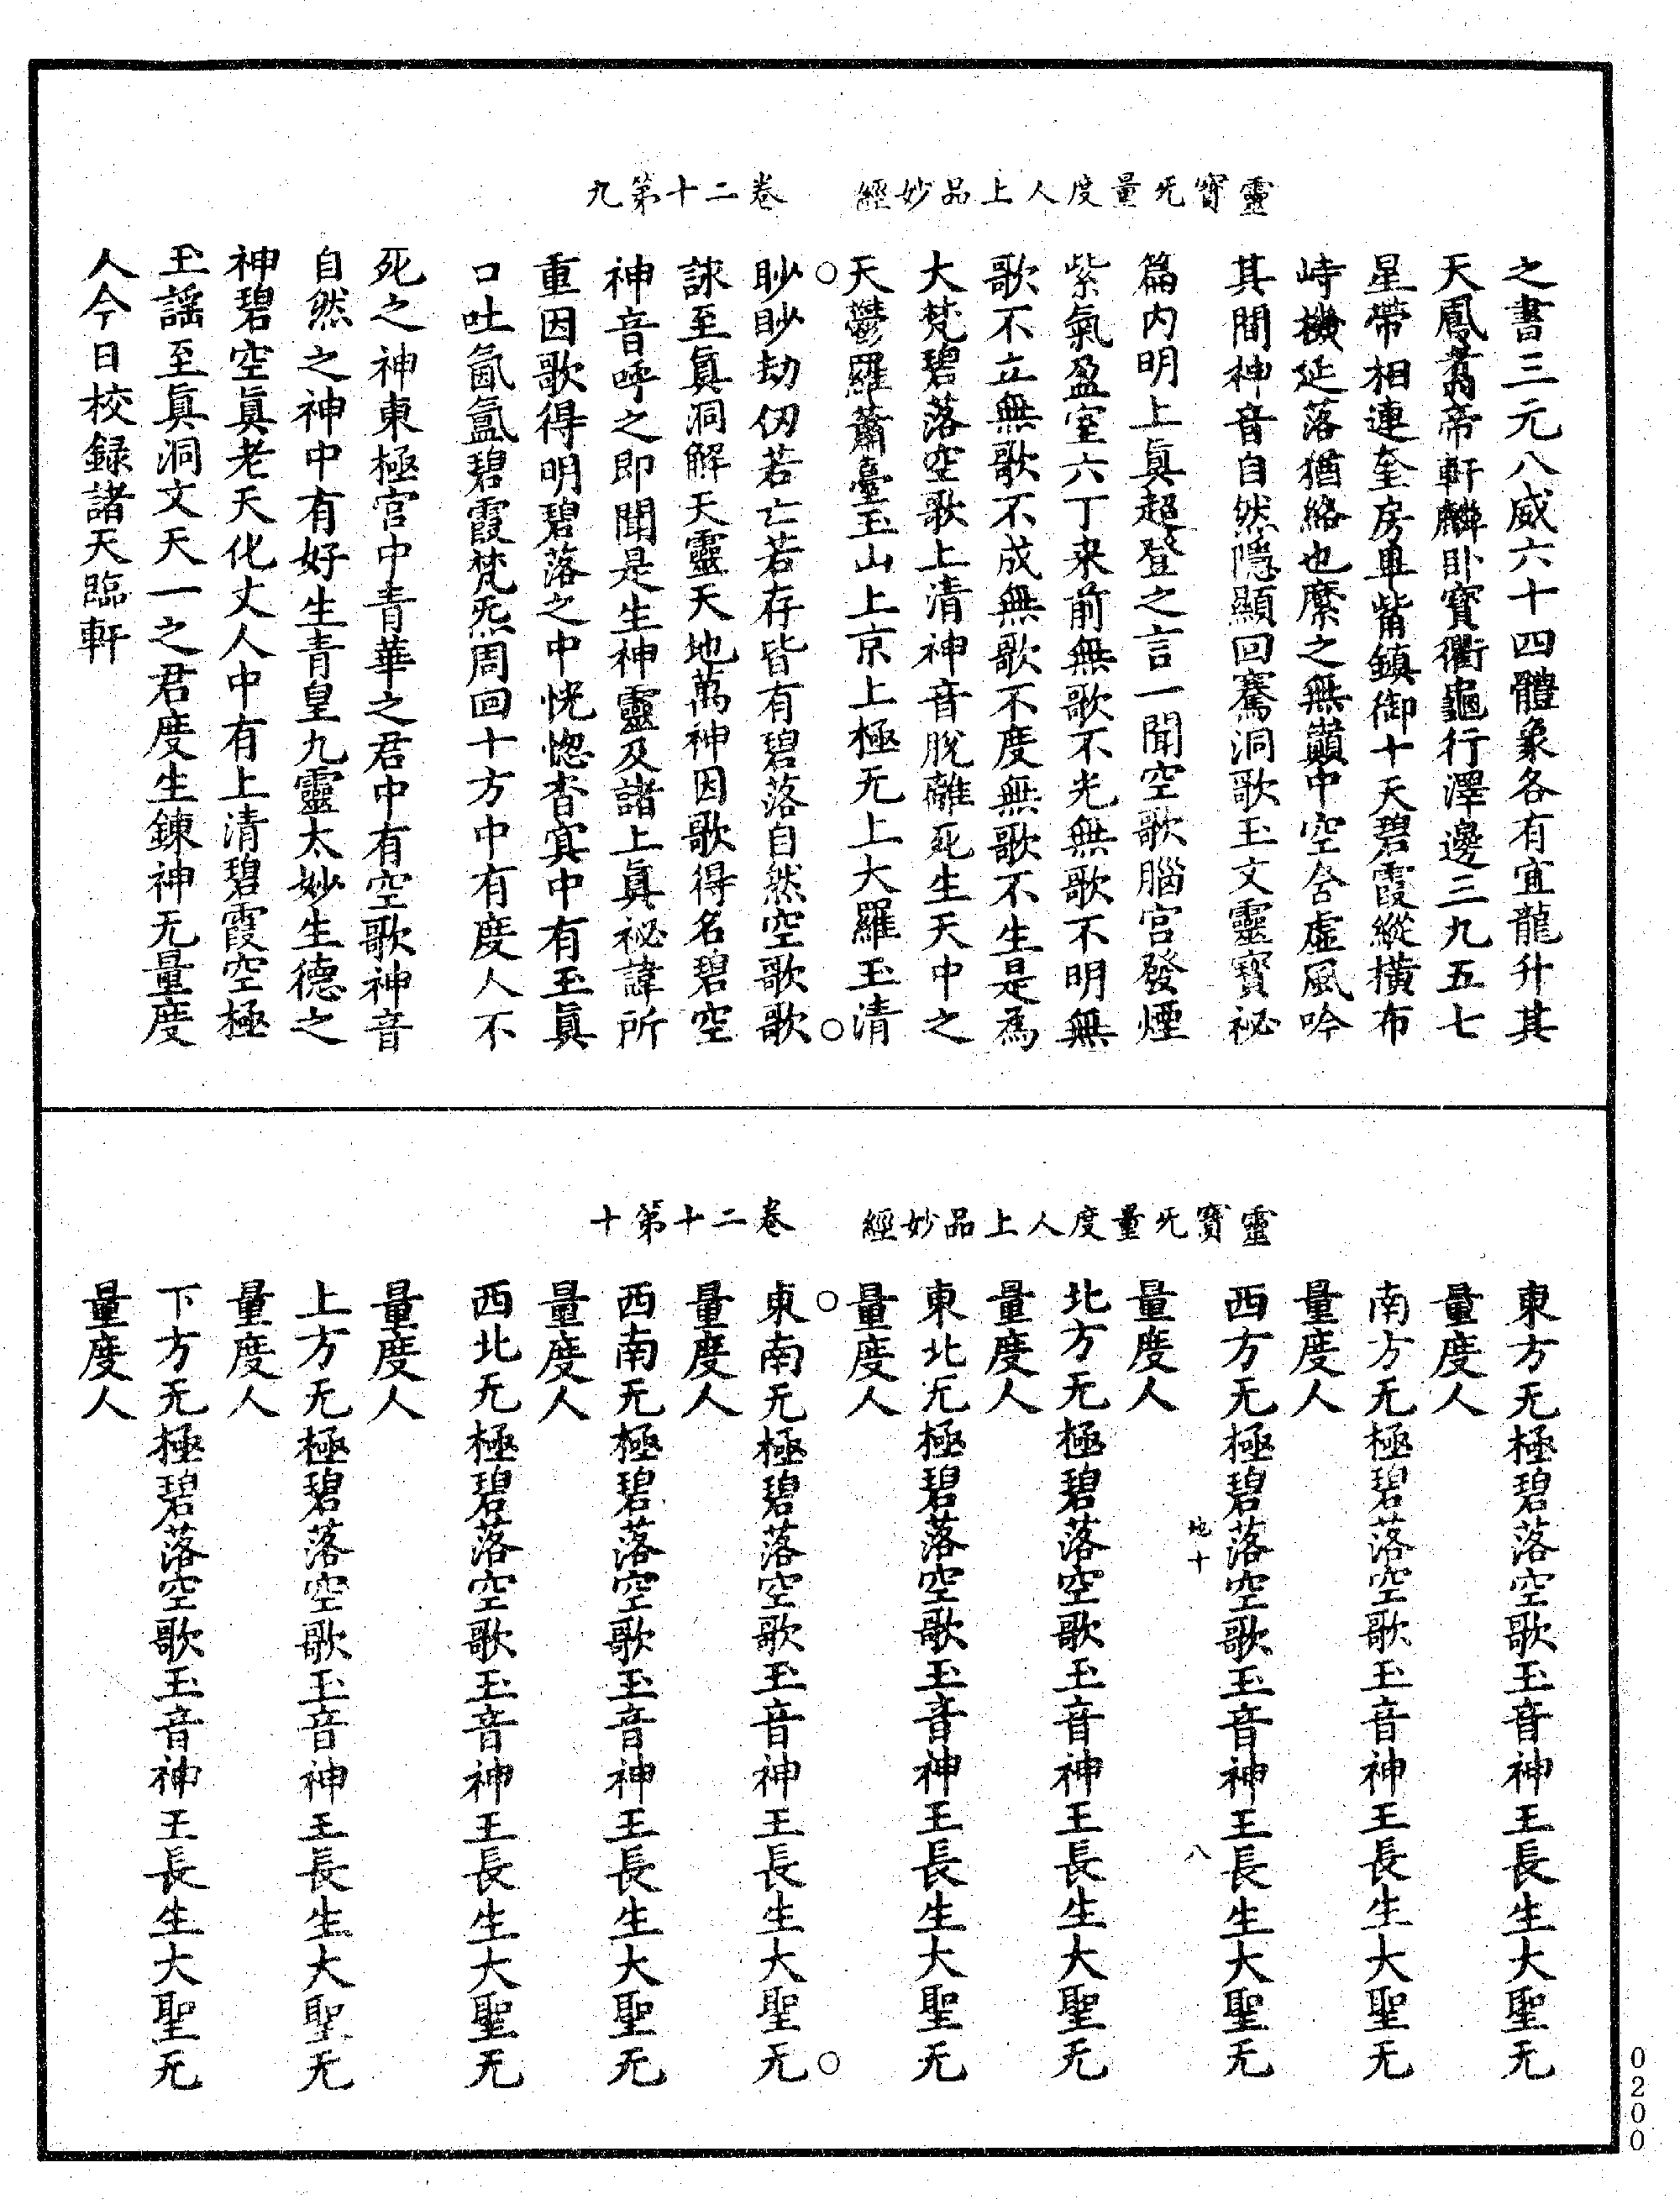 靈寶无量度人上品妙經　卷二十第九
之書三元八威六十四體象各有宜龍升其
天鳳翥帝軒麟卧寶衢龜行澤邊三九五七
星帶相連奎房畢觜鎮御十天碧霞縱橫布
峙機延落猶絡也縻之無巔中空含虛風吟
其間神音自然隱顯回騫洞歌玉文靈寶祕
篇内明上眞超登之言一聞空歌腦宮發煙
紫氣盈室六丁来前無歌不光無歌不明無
歌不立無歌不成無歌不度無歌不生是為
大梵碧落空歌上清神音脫離死生天中之
天鬱羅蕭臺玉山上京上極无上大羅玉清
眇眇劫仞若亡若存皆有碧落自然空歌歌
詠至眞洞解天靈天地萬神因歌得名碧空
神音呼之即聞是生神靈及諸上眞祕諱所
重因歌得明碧落之中恍惚杳冥中有玉眞
口吐氤氳碧霞梵炁周回十方中有度人不
死之神東極宮中青華之君中有空歌神音
自然之神中有好生青皇九靈太妙生德之
神碧空眞老天化丈人中有上清碧霞空極
玉謡至眞洞文天一之君度生鍊神无量度
人今日校録諸天臨軒
靈寶无量度人上品妙經　卷二十第十
東方无極碧落空歌玉音神王長生大聖无
量度人
南方无極碧落空歌玉音神王長生大聖无
量度人
西方无極碧落空歌玉音神王長生大聖无
量度人
地十　八
北方无極碧落空歌玉音神王長生大聖无
量度人
東北无極碧落空歌玉音神王長生大聖无
量度人
東南无極碧落空歌玉音神王長生大聖无
量度人
西南无極碧落空歌玉音神王長生大聖无
量度人
西北无極碧落空歌玉音神王長生大聖无
量度人
上方无極碧落空歌玉音神王長生大聖无
量度人
下方无極碧落空歌玉音神王長生大聖无
量度人
0200